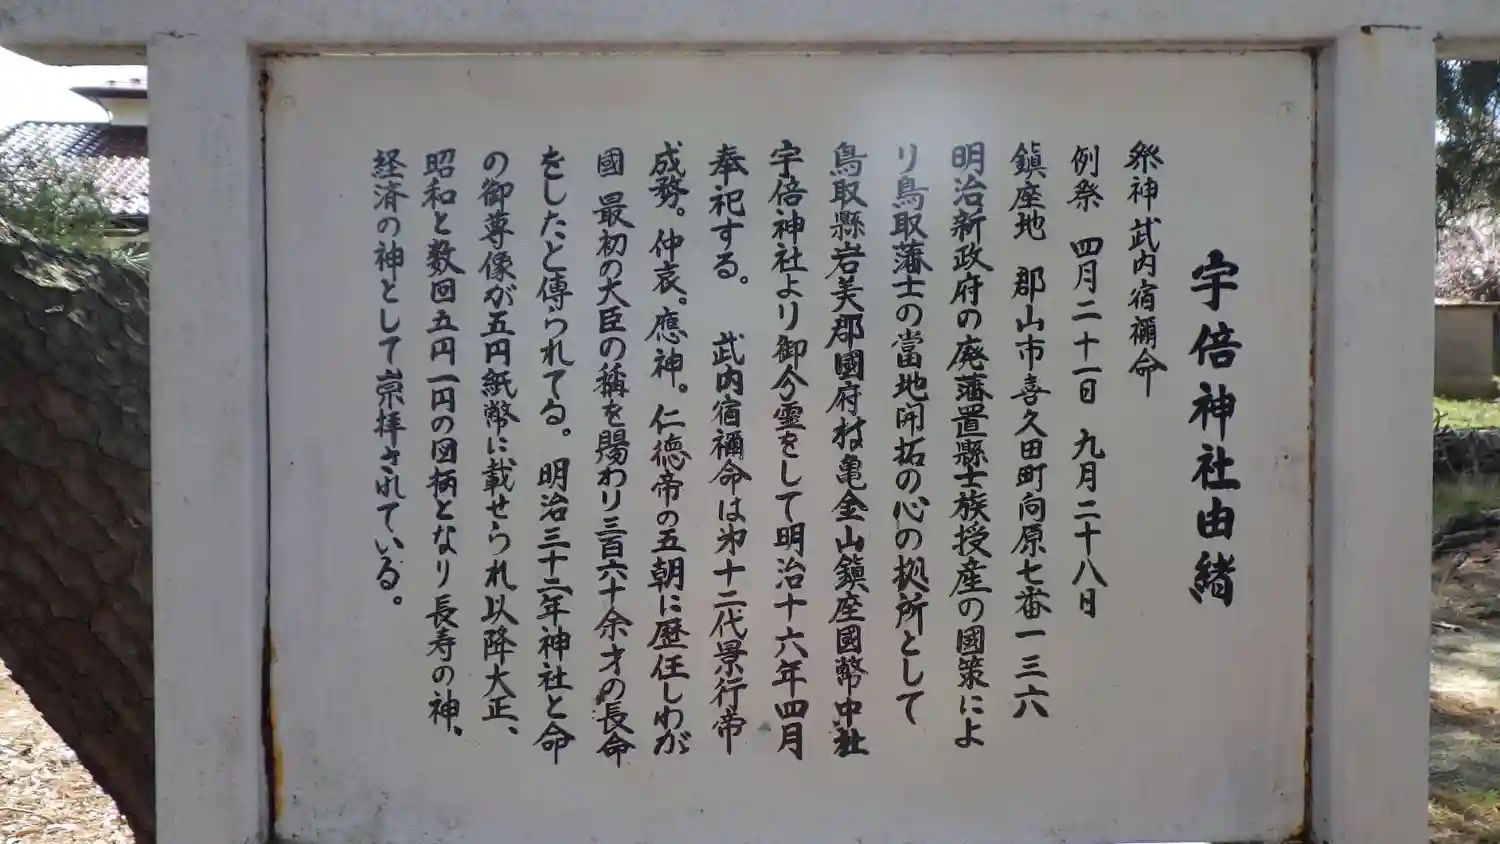 宇倍神社由緒
祭神武内宿禰命
例祭 四月二十一日 九月二十八日
鎮座地 郡山市喜久田町向原七番一三六
明治新政府の廃藩置縣士族授産の國策によ
り鳥取藩士の當地開拓の心の拠所として
鳥取縣岩美郡國府村亀金山鎮座國幣中社
宇倍神社より御分霊をして明治十六年四月
奉祀する。 武内宿禰命は㐧十二代景行帝
成務。仲哀。應神。仁徳帝の五朝に歴任しわが
國 最初の大臣の稱を賜わり三百六十余才の長命
をしたと傳られてる。明治三十二年神社と命
の御尊像が五円紙幣に載せられ以降大正、
昭和と数回五円一円の図柄となり長寿の神、
経済の神として崇拝されている。